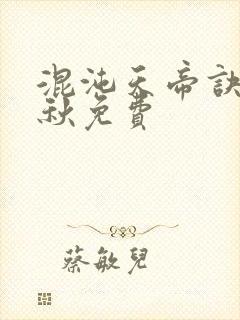 混沌天帝訣
秋免費
蔡敏兒